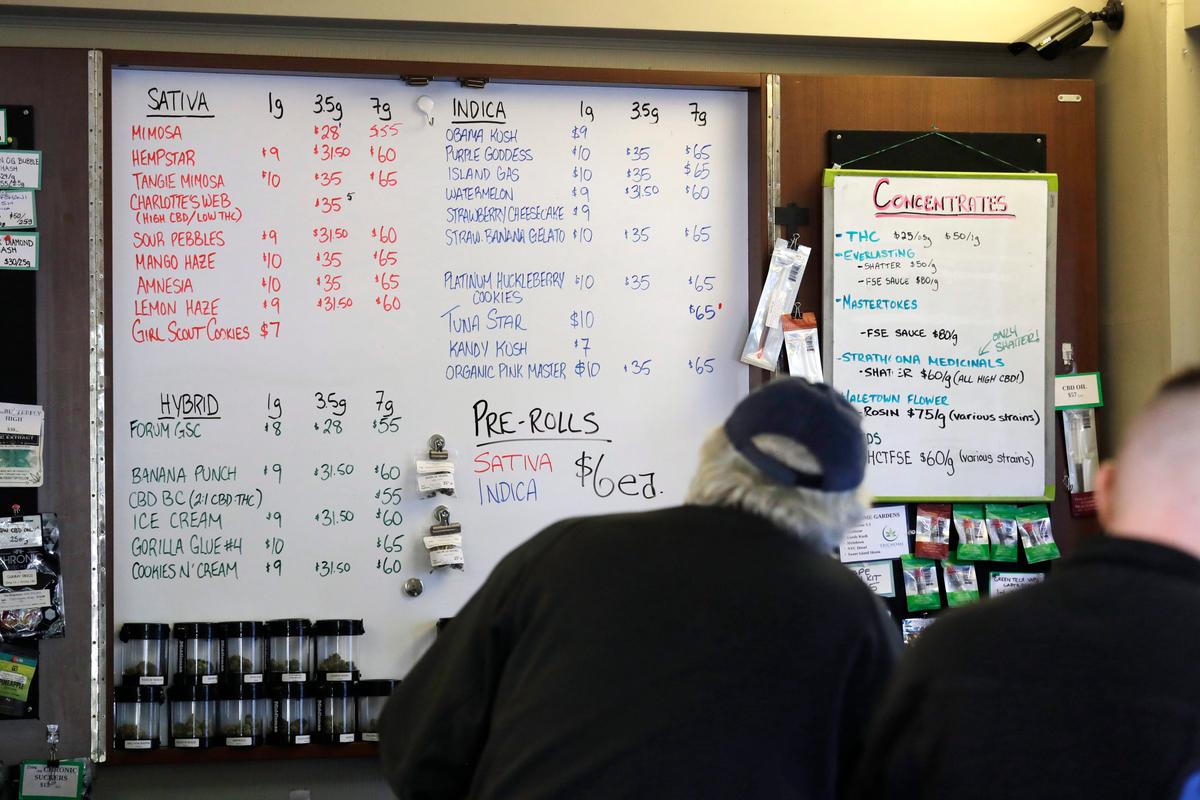 SATIVA 1g 3.5g 7g
MIMOSA $28 $55
HEMPSTAR $9 $31.50 $60
TANGIE MIMOSA $10 $35 $65
CHARLOTTE'S WEB $35
(HIGH CBD/LOW THC)
SOUR PEBBLES $9 $31.50 $60
MANGO HAZE $10 $35 $65
AMNESIA $10 $35 $65
LEMON HAZE $9 $31.50 $60
GIRL SCOUT COOKIES $7
HYBRID 1g 3.5g 7g
FORUM GSC $8 $28 $55
BANANA PUNCH $9 $31.50 $60
CBD BC (2:1 CBD:THC) $55
ICE CREAM $9 $31.50 $60
GORILLA GLUE #4 $10 $65
COOKIES N' CREAM $9 $31.50 $60
INDICA 1g 3.5g 7g
OBAMA KUSH $9
PURPLE GODDESS $10 $35 $65
ISLAND GAS $10 $35 $65
WATERMELON $9 $31.50 $60
STRAWBERRY CHEESECAKE $9
STRAW. BANANA GELATO $10 $35 $65
PLATINUM HUCKLEBERRY $10 $35 $65
COOKIES
TUNA STAR $10 $65
KANDY KUSH $7
ORGANIC PINK MASTER $10 $35 $65
PRE-ROLLS
SATIVA $6 ea.
INDICA
CONCENTRATES
- THC $25/.5g $50/1g
- EVERLASTING
- SHATTER $50/g
- FSE SAUCE $80/g
- MASTERTOKES
- FSE SAUCE $80/g
ONLY
SHATTER!
- STRATHCONA MEDICINALS
- SHATTER $60/g (ALL HIGH CBD!)
WHALETOWN FLOWER
- ROSIN $75/g (various strains)
DS
HCTFSE $60/g (various strains)
CBD OIL
$57
CHRONIC
SUCKERS